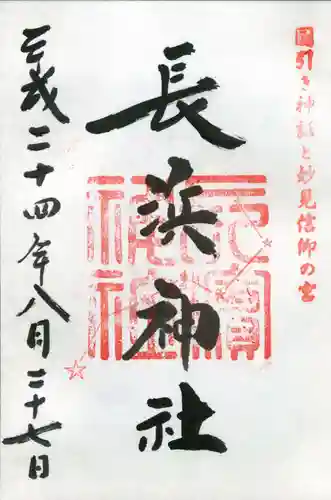 国引き神話と妙見信仰の宮
長浜神社
平成二十四年八月二十七日